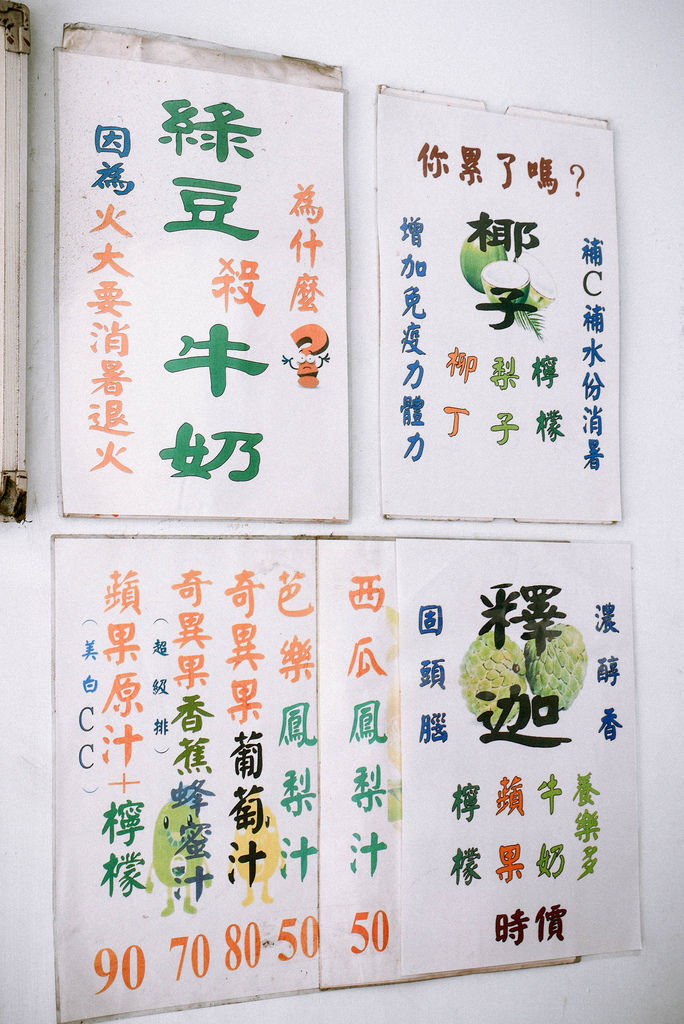 為什麼?
綠豆殺牛奶
因為火大要消暑退火
你累了嗎?
補C補水份消暑
椰子
檸檬
梨子
柳丁
增加免疫力體力
濃醇香
釋迦
固頭腦
養樂多
牛奶
蘋果
檸檬
時價
西瓜鳳梨汁
50
芭樂鳳梨汁
50
奇異果葡萄汁
80
奇異果香蕉蜂蜜汁
(超級排)
70
蘋果原汁+檸檬
(美白CC)
90